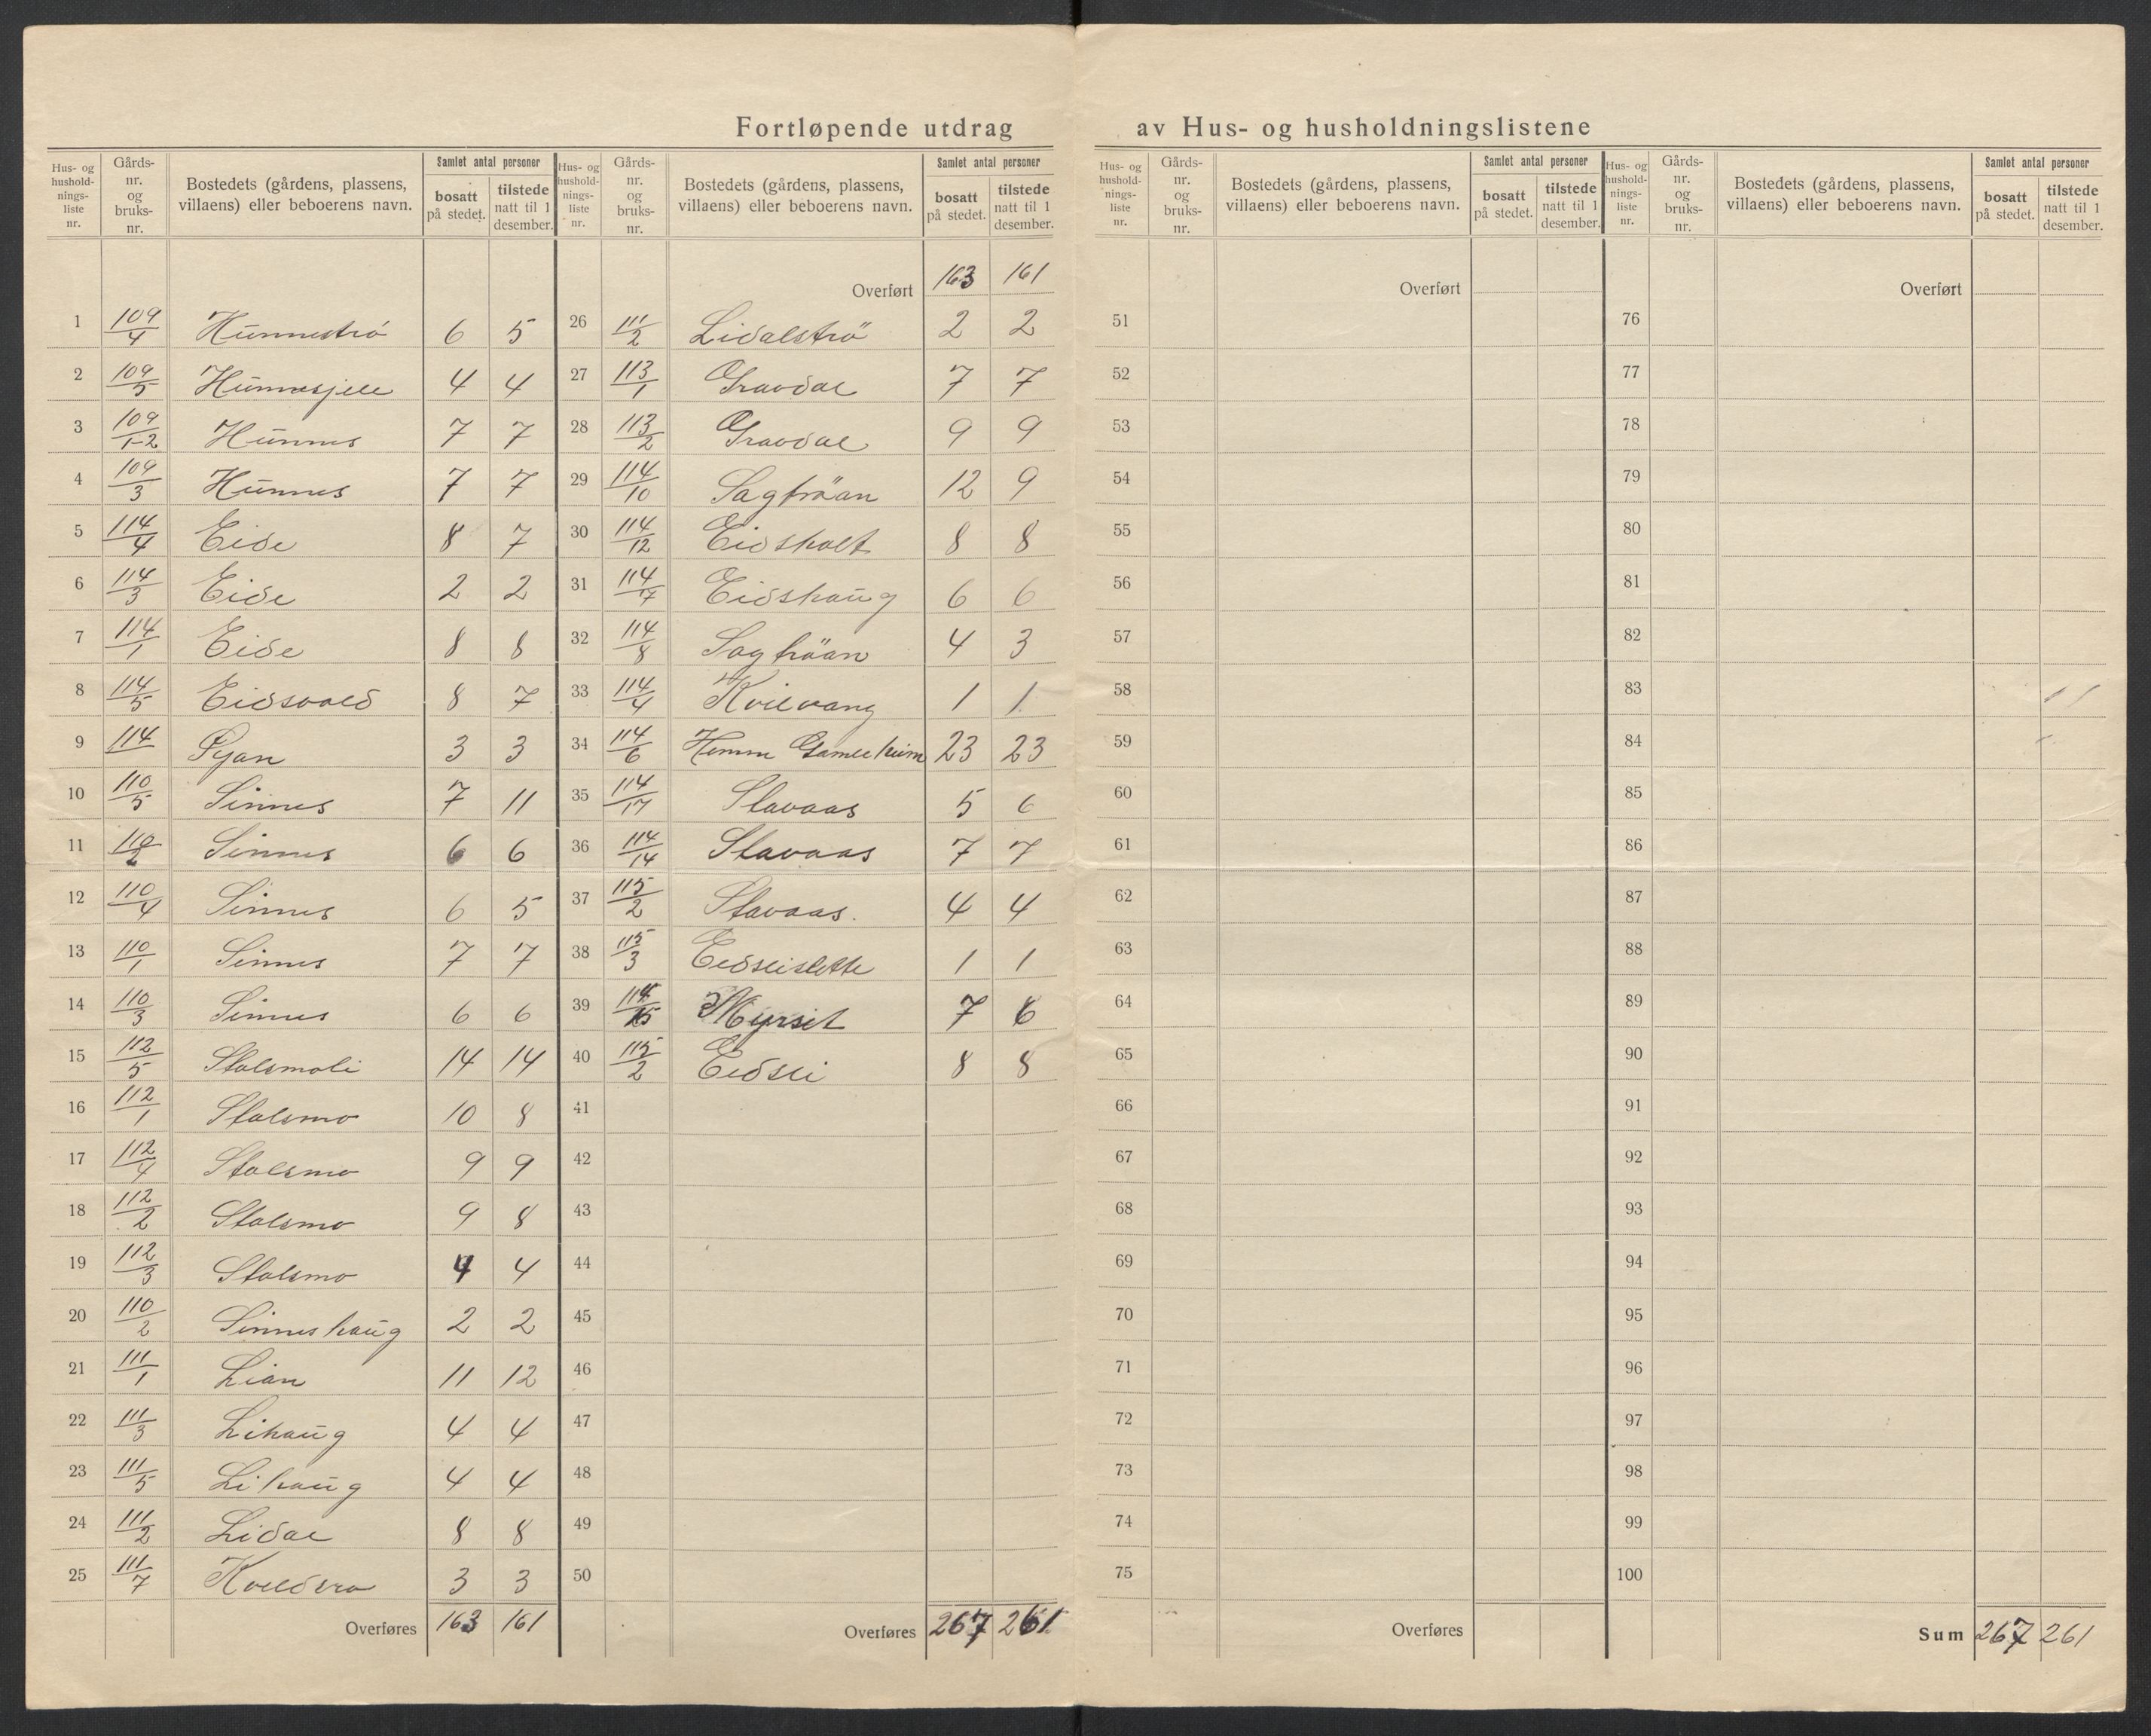 Fortløpende utdrag av Hus- og husholdningslistene
Hus- og husholdnings-liste nr. | Gårds-nr. og bruks-nr. | Bostedets (gårdens, plassens, villaens) eller beboerens navn. | Samlet antal personer bosatt på stedet. | tilstede natt til 1 desember.
1 109/4 Hunnestrø 6 5
2 109/5 Hunnesjele 4 4
3 109/1-2 Hunnes 7 7
4 109/3 Hunnes 7 7
5 114/4 Eide 8 7
6 114/3 Eide 2 2
7 114/1 Eide 8 8
8 114/5 Eidsvold 8 7
9 114 3 3
10 110/5 Sinnes 7 11
11 110/2 Sinnes 6 6
12 110/4 Sinnes 6 5
13 110/1 Sinnes 7 7
14 110/3 Sinnes 6 6
15 112/5 Stolsmoli 14 14
16 112/1 Stolsmo 10 8
17 112/4 Stolsmo 9 9
18 112/2 Stolsmo 9 8
19 112/3 Stolsmo 4 4
20 110/2 Sinneshaug 2 2
21 111/1 Lian 11 12
22 111/3 Lihaug 4 4
23 111/5 Lihaug 4 4
24 111/2 Lidal 8 8
25 111/7 Kveldsro 3 3
Overføres 163 161
Hus- og husholdnings-liste nr. | Gårds-nr. og bruks-nr. | Bostedets (gårdens, plassens, villaens) eller beboerens navn. | Samlet antal personer bosatt på stedet. | tilstede natt til 1 desember.
Overført 163 161
26 111/2 Lidalströ 2 2
27 113/1 Gravdal 7 7
28 113/2 Gravdal 9 9
29 114/10 Sagtröan 12 9
30 114/12 Eidsholt 8 8
31 114/7 Eidshaug 6 6
32 114/8 Sagtröan 4 3
33 114/4 Kvilvang 1 1
34 114/6 Hemne Gamleheim 23 23
35 114/17 Stavaas 5 6
36 114/14 Stavaas 7 7
37 115/2 Stavaas. 4 4
38 115/3 Eidslislette 1 1
39 114/15 Myrset 7 6
40 115/2 Eidsli 8 8
41
42
43
44
45
46
47
48
49
50
Overføres 267 261
Hus- og husholdnings-liste nr. | Gårds-nr. og bruks-nr. | Bostedets (gårdens, plassens, villaens) eller beboerens navn. | Samlet antal personer bosatt på stedet. | tilstede natt til 1 desember.
Overført
51
52
53
54
55
56
57
58
59
60
61
62
63
64
65
66
67
68
69
70
71
72
73
74
75
Overføres
Hus- og husholdnings-liste nr. | Gårds-nr. og bruks-nr. | Bostedets (gårdens, plassens, villaens) eller beboerens navn. | Samlet antal personer bosatt på stedet. | tilstede natt til 1 desember.
Overført
76
77
78
79
80
81
82
83
84
85
86
87
88
89
90
91
92
93
94
95
96
97
98
99
100
Sum 267 261